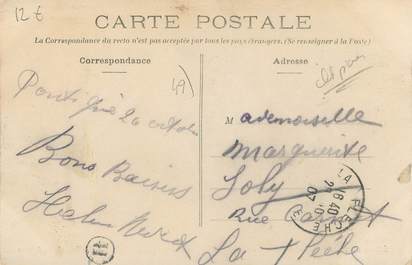 12 €
CARTE POSTALE
La Correspondance du recto n'est pas acceptée par tous les pays étrangers. (Se renseigner à la Poste)
Correspondance
Adresse
49)
20 octobre
Bons Baisers
Mademoiselle
Marguerite
Joly
Rue Carnot
La Flèche
LA FLECHE
16 40
07